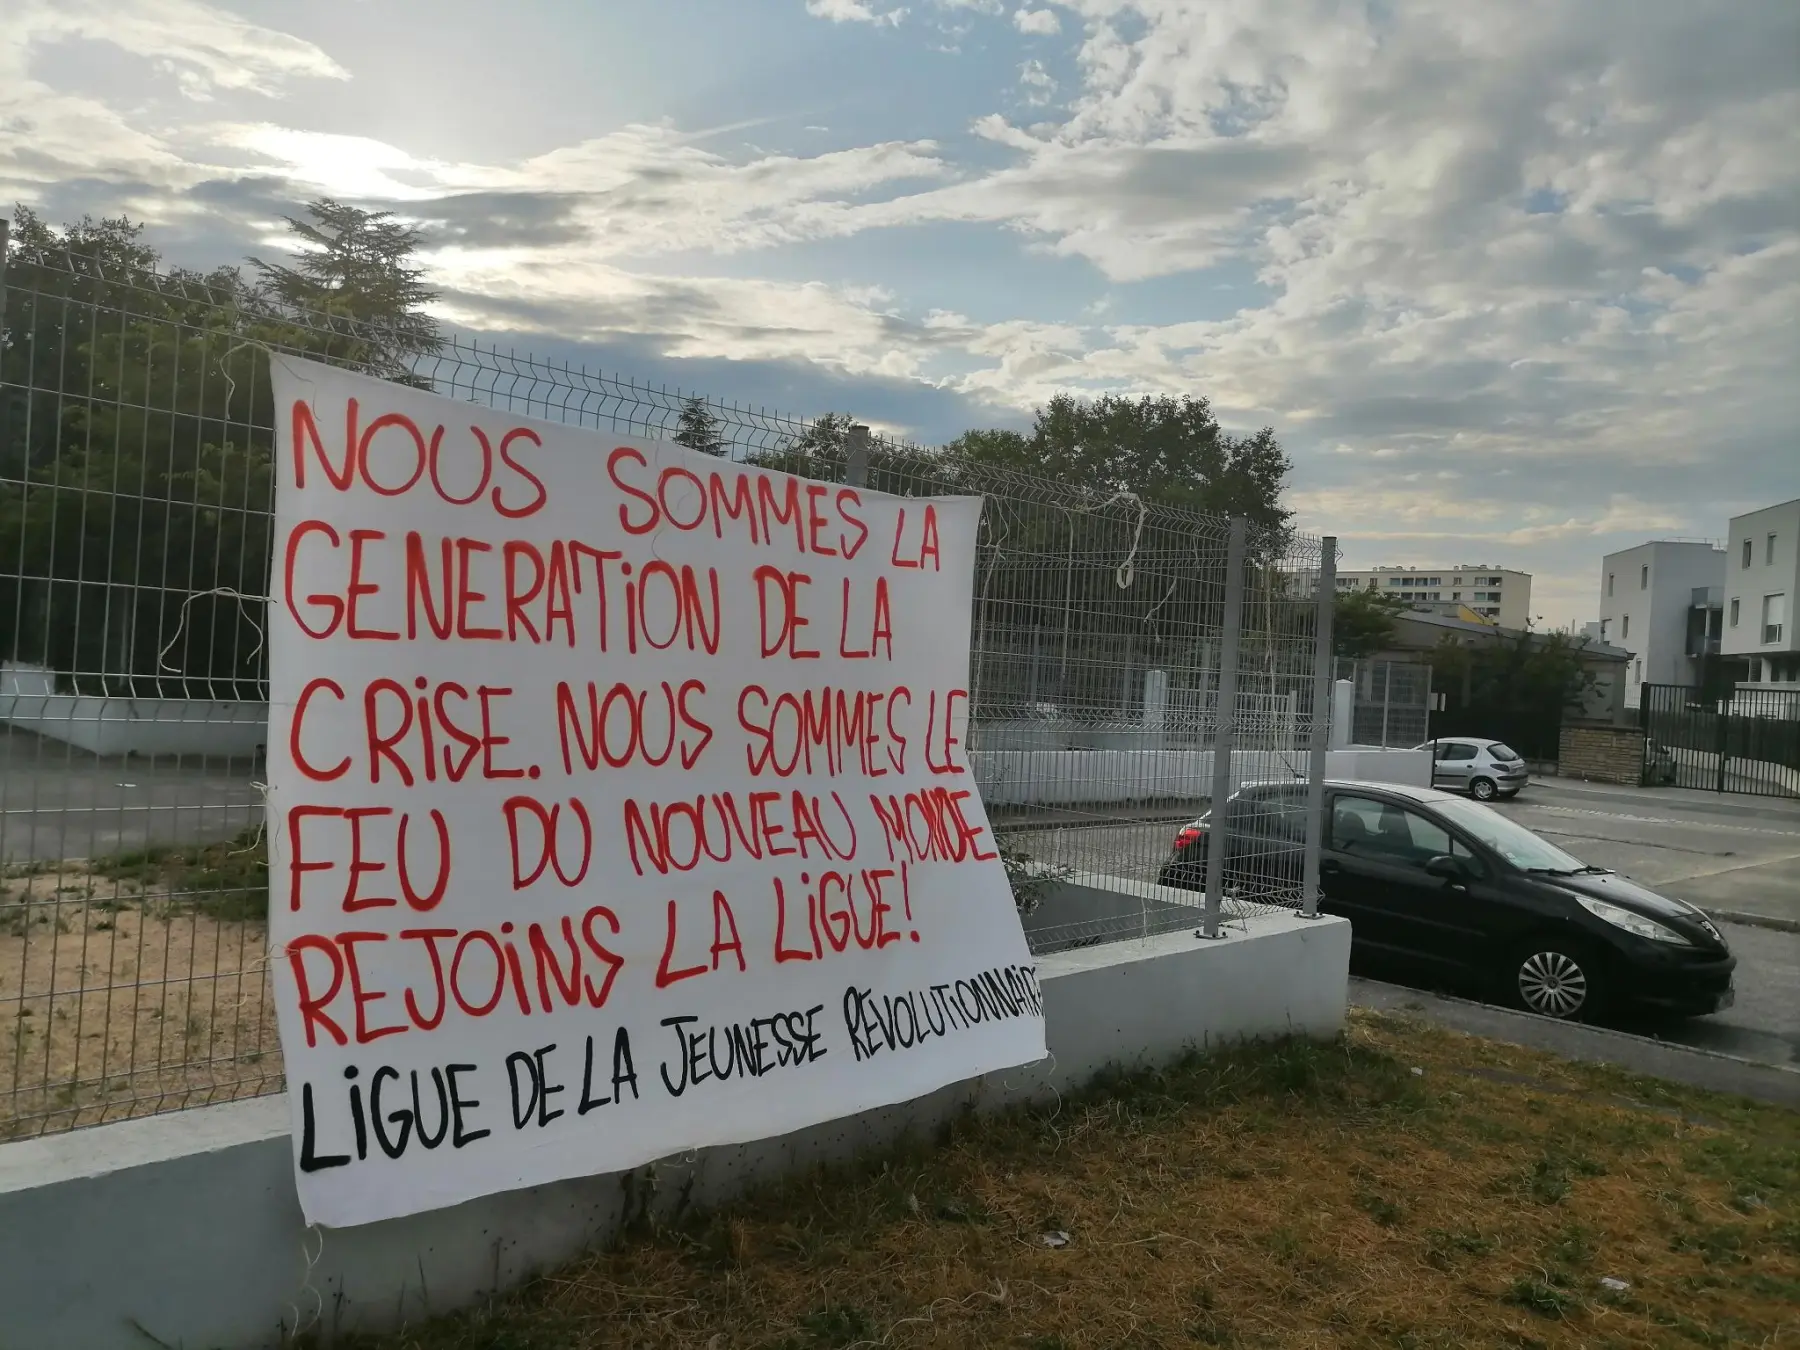 NOUS SOMMES LA
GENERATION DE LA
CRiSE. NOUS SOMMES LE
FEU DU NOUVEAU MONDE
REJOiNS LA LiGUE!
LiGUE DE LA JEUNESSE REVOLUTIONNAiRE